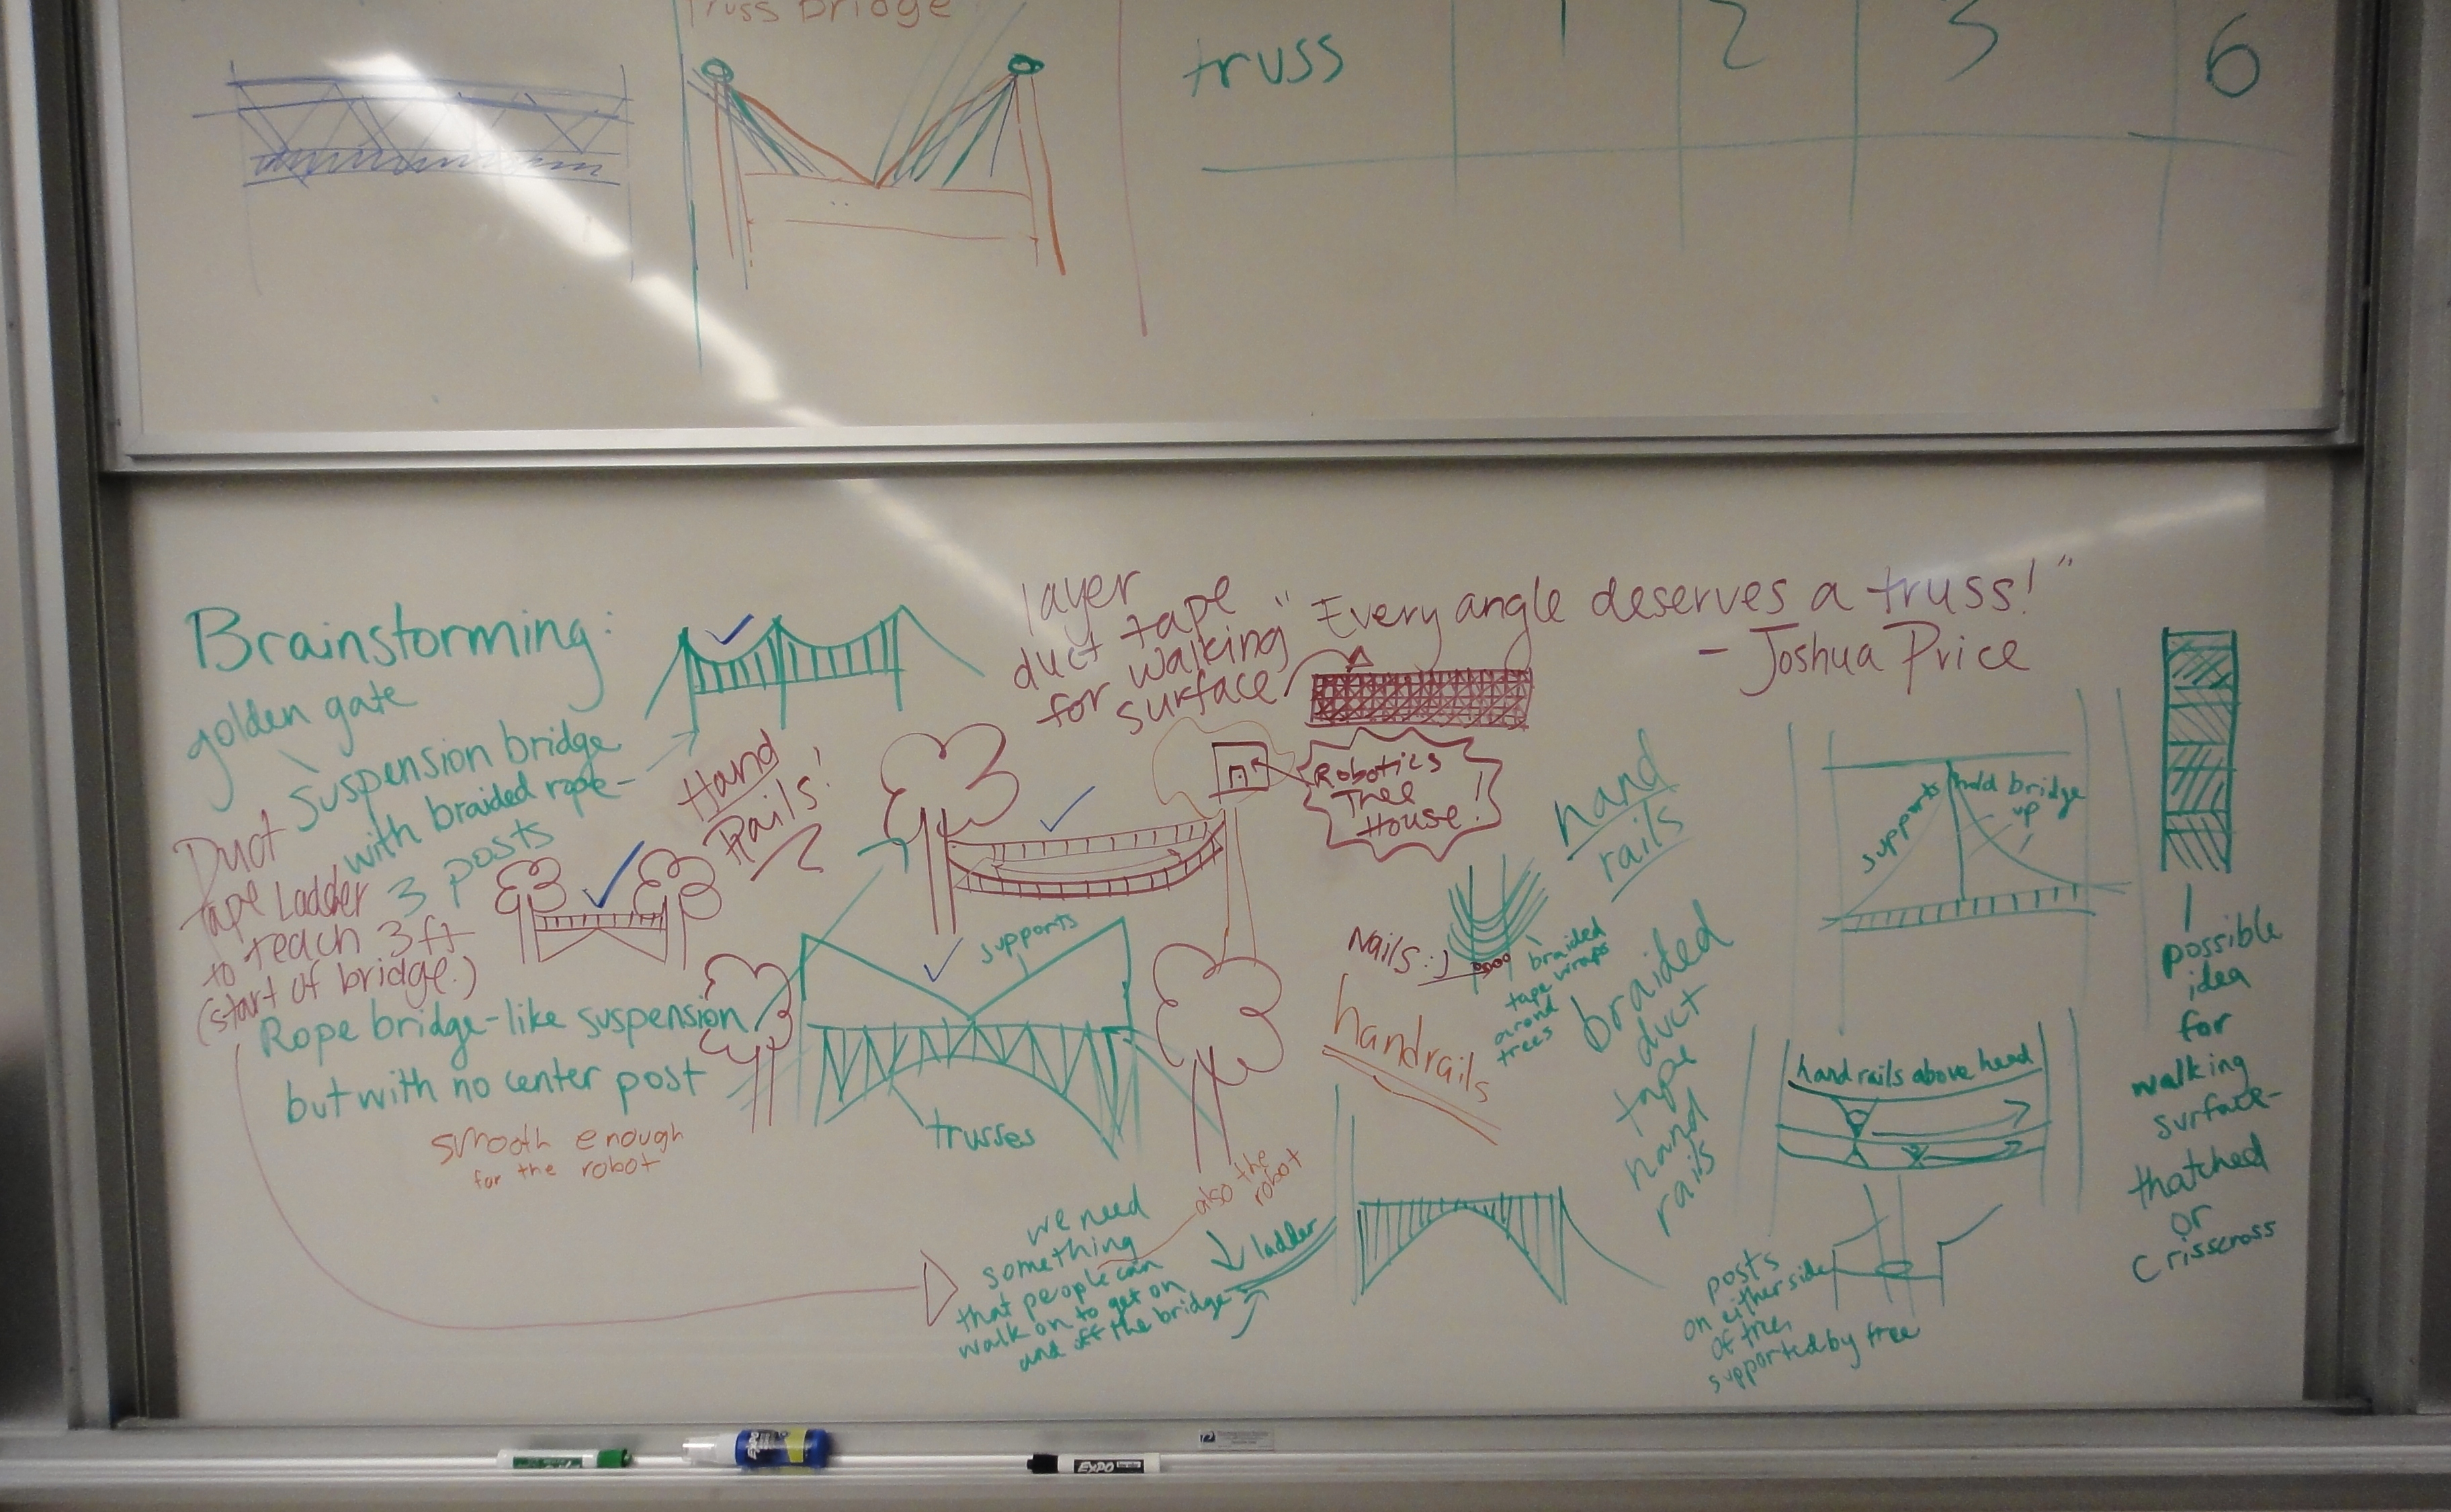 Truss Bridge
truss 1 2 3 6
Brainstorming:
golden gate
suspension bridge
with braided rope-
3 posts
Duct
tape Ladder
to reach 3 ft
(start of bridge.)
Hand
Rails!
layer
duct tape
for walking
surface
"Every angle deserves a truss!"
- Joshua Price
Robotics
Tree
House!
hand
rails
supports
hold bridge
up
Rope bridge-like suspension
but with no center post
smooth enough
for the robot
supports
trusses
Nails :)
braided
tape wraps
around
trees
handrails
braided
duct
tape
hand
rails
hand rails above head
possible
idea
for
walking
surface-
thatched
or
Crisscross
also the
robot
we need
something
that people can
walk on to get on
and off the bridge
ladder
posts
on either side
of tree,
supported by tree
EXPO
EXPO